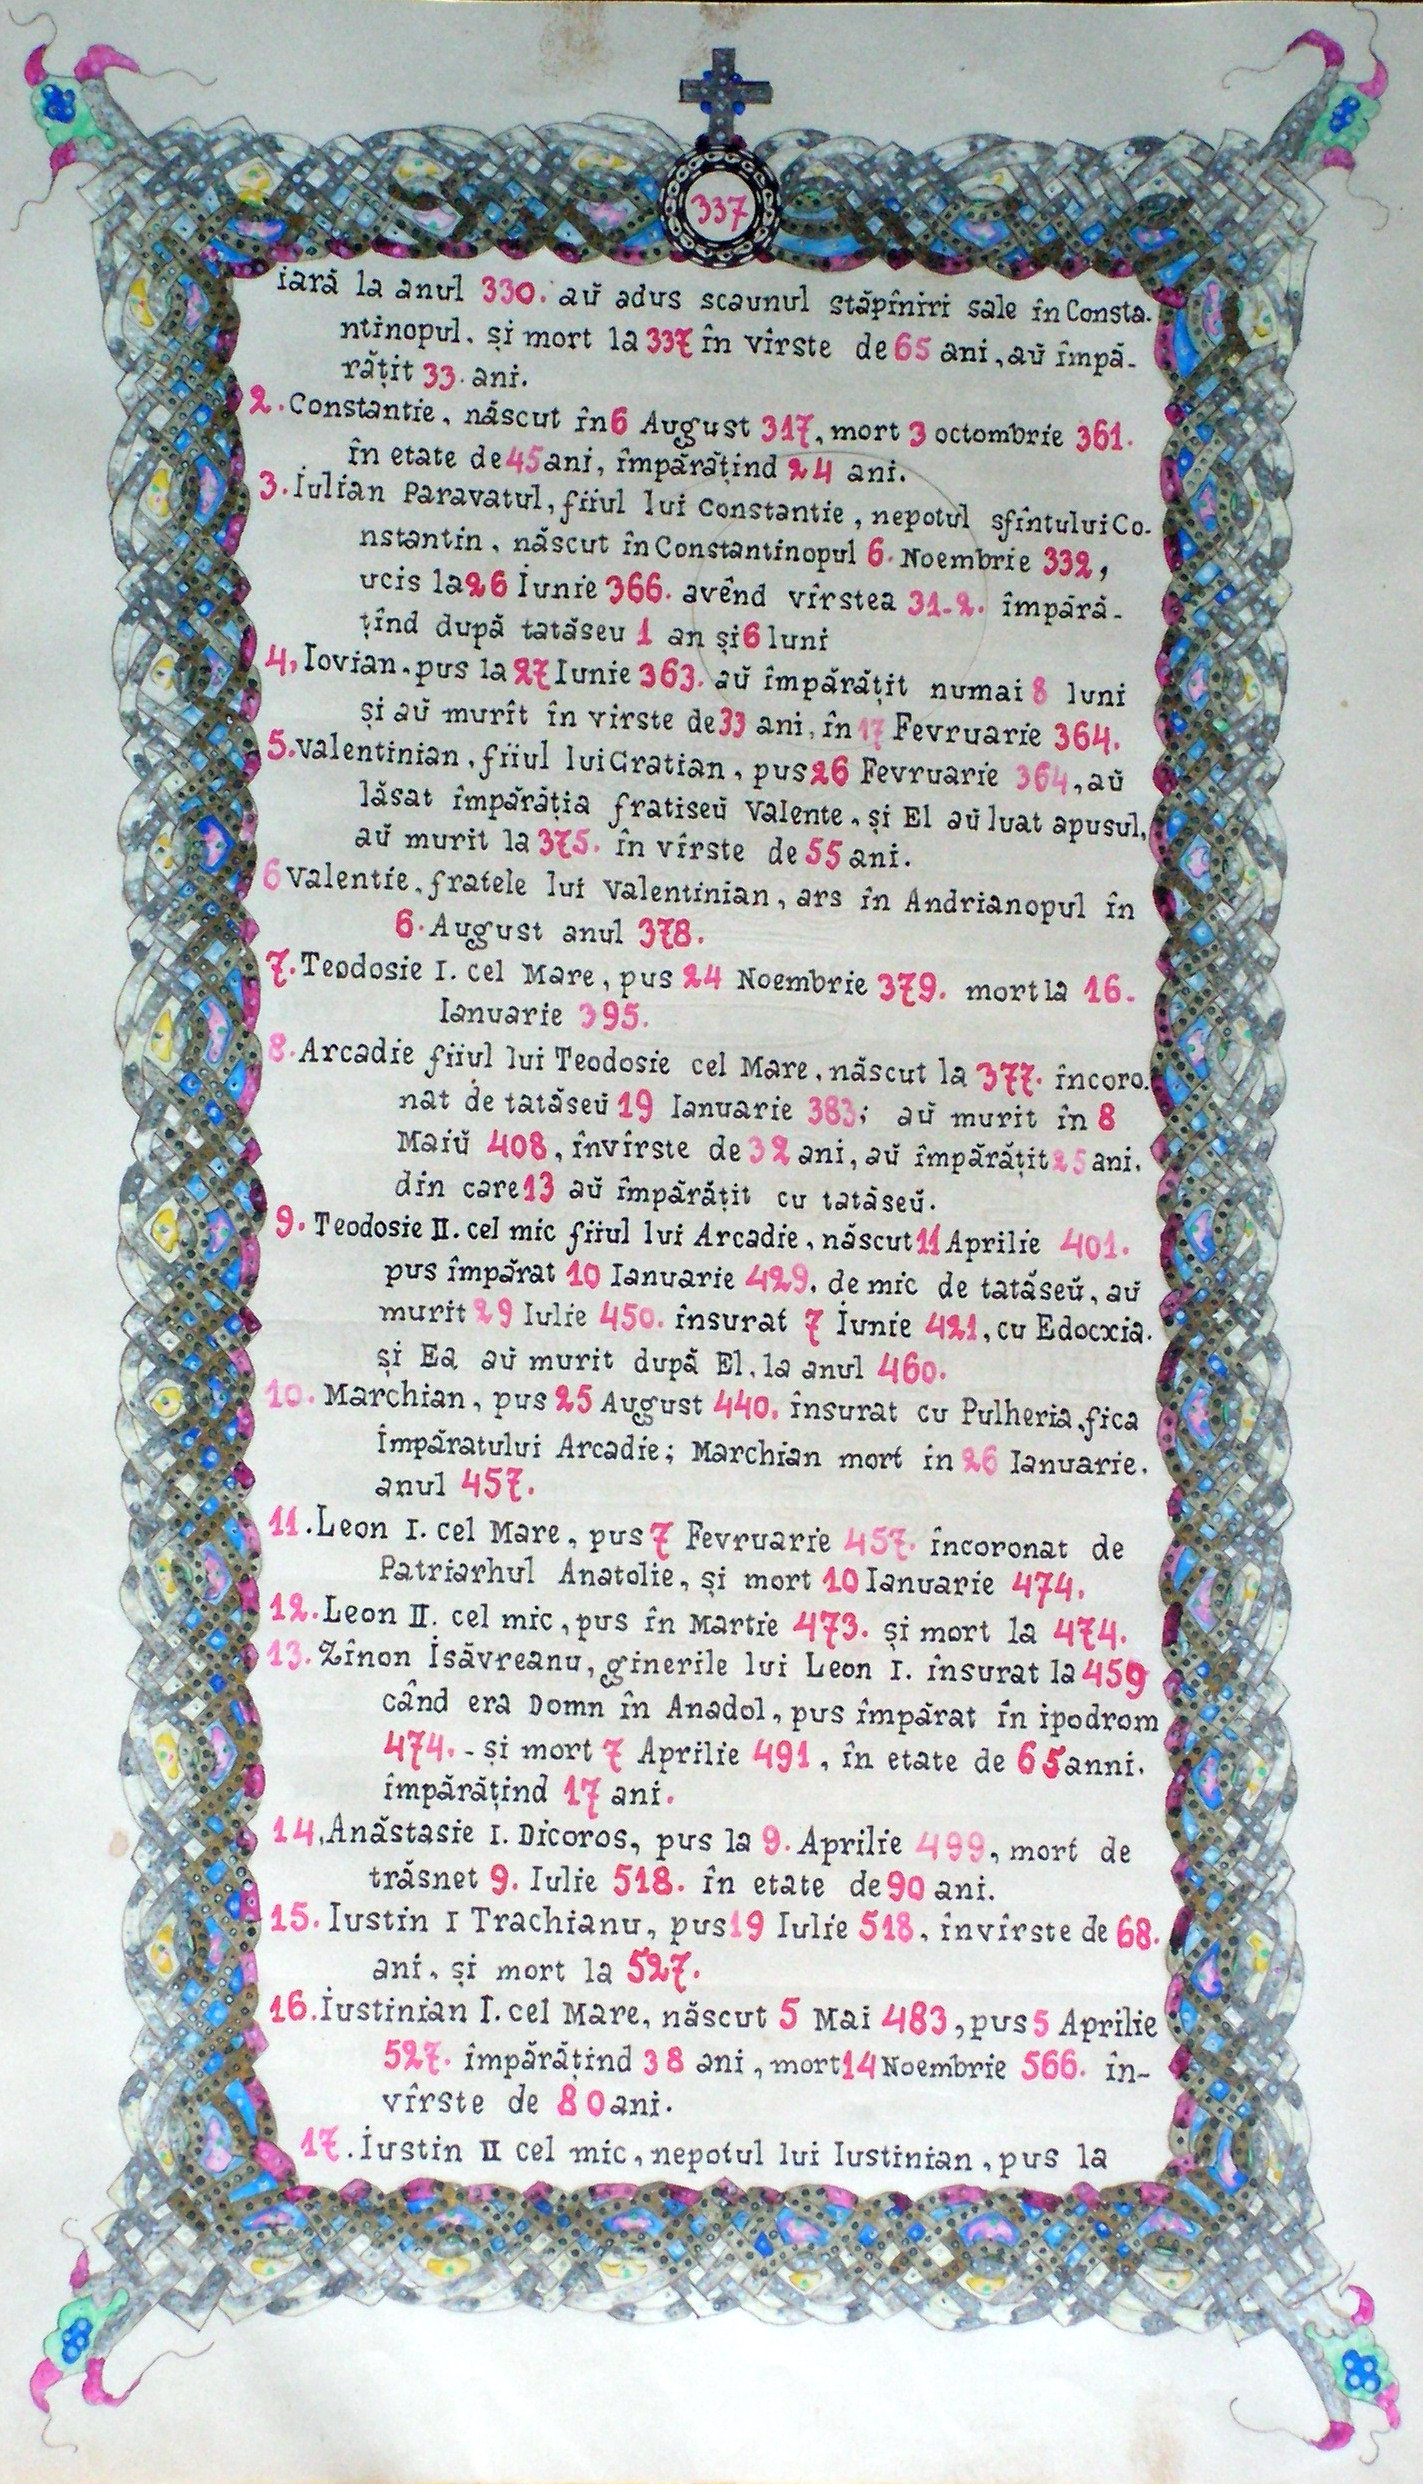 337
iară la anul 330. aŭ adus scaunul stăpîniri sale în Consta.
ntinopul, și mort la 337 în vîrste de 65 ani, aŭ împă-
rățit 33. ani.
2. Constantie, născut în 6 August 317, mort 3 octombrie 361.
în etate de 45 ani, împărățind 24 ani.
3. Iulian Paravatul, fiiul lui Constantie, nepotul sfîntului Co-
nstantin, născut în Constantinopul 6. Noembrie 332,
ucis la 26 Iunie 366. avênd vîrstea 31-2. împără-
țînd după tatăseu 1 an și 6 luni
4, Iovian, pus la 27 Iunie 363. aŭ împărățit numai 8 luni
și aŭ murît în virste de 33 ani, în 17 Fevruarie 364.
5. Valentinian, fiiul lui Gratian, pus 26 Fevruarie 364, aŭ
lăsat împărăția fratiseŭ Valente, și El aŭ luat apusul,
aŭ murit la 375. în vîrste de 55 ani.
6 Valentie, fratele lui Valentinian, ars în Andrianopul în
6. August anul 378.
7. Teodosie I. cel Mare, pus 24 Noembrie 379. mort la 16.
Ianuarie 395.
8. Arcadie fiiul lui Teodosie cel Mare, născut la 377. încoro.
nat de tatăseŭ 19 Ianuarie 383; aŭ murit în 8
Maiŭ 408, învîrste de 32 ani, aŭ împărățit 25 ani.
din care 13 aŭ împărățit cu tatăseŭ.
9. Teodosie II. cel mic fiiul lui Arcadie, născut 11 Aprilie 401.
pus împărat 10 Ianuarie 429. de mic de tatăseŭ, aŭ
murit 29 Iulie 450. însurat 7 Iunie 421, cu Edocxia.
și Ea aŭ murit după El, la anul 460.
10. Marchian, pus 25 August 440. însurat cu Pulheria, fica
Împăratului Arcadie; Marchian mort în 26 Ianuarie.
anul 457.
11. Leon I. cel Mare, pus 7 Fevruarie 457. încoronat de
Patriarhul Anatolie, și mort 10 Ianuarie 474.
12. Leon II. cel mic, pus în Martie 473. și mort la 474.
13. Zînon Isăvreanu, ginerile lui Leon I. însurat la 459
când era Domn în Anadol, pus împărat în ipodrom
474. - și mort 7 Aprilie 491, în etate de 65 anni.
împărățind 17 ani.
14. Anăstasie I. Dicoros, pus la 9. Aprilie 499, mort de
trăsnet 9. Iulie 518. în etate de 90 ani.
15. Iustin I Trachianu, pus 19 Iulie 518, învîrste de 68.
ani, și mort la 527.
16. Iustinian I. cel Mare, născut 5 Mai 483, pus 5 Aprilie
527. împărățind 38 ani, mort 14 Noembrie 566. în-
vîrste de 80 ani.
17. Iustin II cel mic, nepotul lui Iustinian, pus la